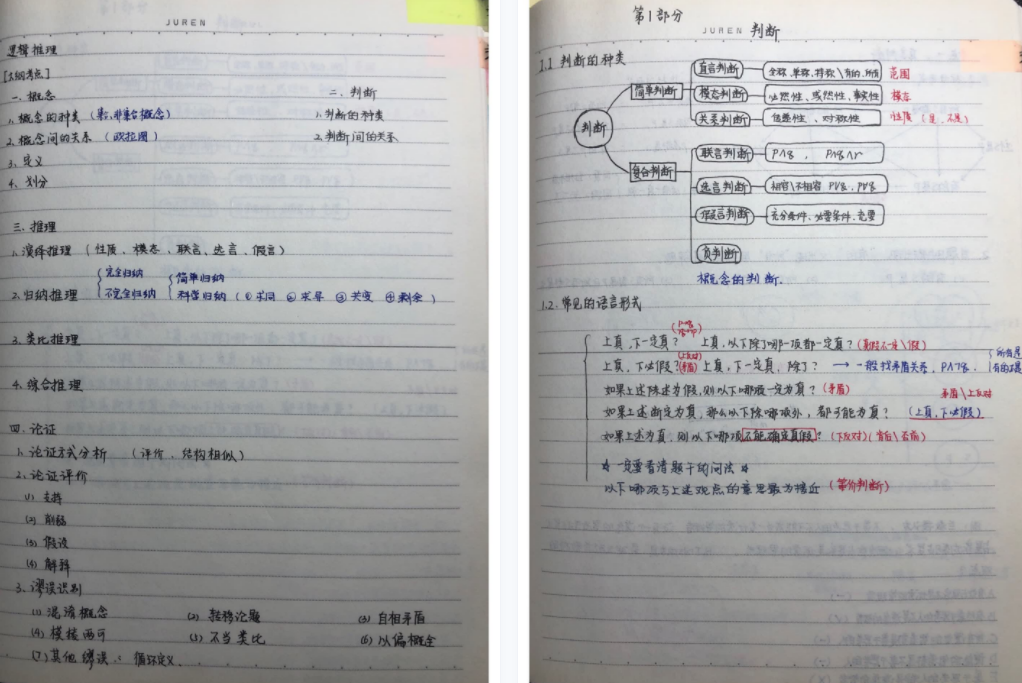 JUREN
逻辑推理
[大纲考点]
一、概念
二、判断
1、概念的种类（集、非集合概念）
1、判断的种类
2、概念间的关系（欧拉图）
2、判断间的关系
3、定义
4、划分
三、推理
1、演绎推理（性质、模态、联言、选言、假言）
2、归纳推理
完全归纳
不完全归纳
简单归纳
科学归纳（①求同 ②求异 ③共变 ④剩余）
3、类比推理
4、综合推理
四、论证
1、论证方式分析（评价、结构相似）
2、论证评价
(1) 支持
(2) 削弱
(3) 假设
(4) 解释
3、谬误识别
(1) 混淆概念 (2) 转移论题 (3) 自相矛盾
(4) 模棱两可 (5) 不当类比 (6) 以偏概全
(7) 其他谬误：循环定义
第1部分
JUREN 判断
1.1 判断的种类
判断
简单判断
直言判断 全称、单称、特称\有的、所有 范围
模态判断 必然性、或然性、事实性 模态
关系判断 传递性、对称性 性质（是、不是）
复合判断
联言判断 P∧q， P∧q∧r
选言判断 相容\不相容 P∨q、P∀q
假言判断 充分条件、必要条件、充要
负判断
概念的判断.
1.2. 常见的语言形式
上真，下一定真？ 上真，以下除了哪一项都一定真？
上真，下必假？（矛盾） 上真，下一定真，除了？ → 一般找矛盾关系，P∧¬q.
如果上述陈述为假，则以下哪项一定为真？（矛盾）
矛盾\上反对
如果上述断定为真，那么以下除哪项外，都可能为真？（上真，下必假）
如果上述为真，则以下哪项不能确定真假？（下反对）（肯后\否前）
☆ 一定要看清题干的问法 ☆
以下哪项与上述观点的意思最为接近（等价判断）